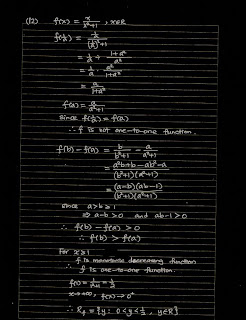 (12) f(x) = x/(x²+1) , x∈R
f(1/a) = (1/a)/((1/a)²+1)
= 1/a ÷ (1+a²)/a²
= 1/a · a²/(1+a²)
= a/(1+a²)
f(a) = a/(a²+1)
Since f(1/a) = f(a)
∴ f is not one-to-one function.
f(b) - f(a) = b/(b²+1) - a/(a²+1)
= (a²b+b-ab²-a)/((b²+1)(a²+1))
= (a-b)(ab-1)/((b²+1)(a²+1))
Since a>b≥1
⇒ a-b>0 and ab-1>0
∴ f(b) - f(a) > 0
∴ f(b) > f(a)
For x≥1
f is monotonic decreasing function
∴ f is one-to-one function.
f(1) = 1/(1+1) = 1/2
x→+∞, f(x)→0⁺
∴ R_f = {y: 0<y≤1/2, y∈R}